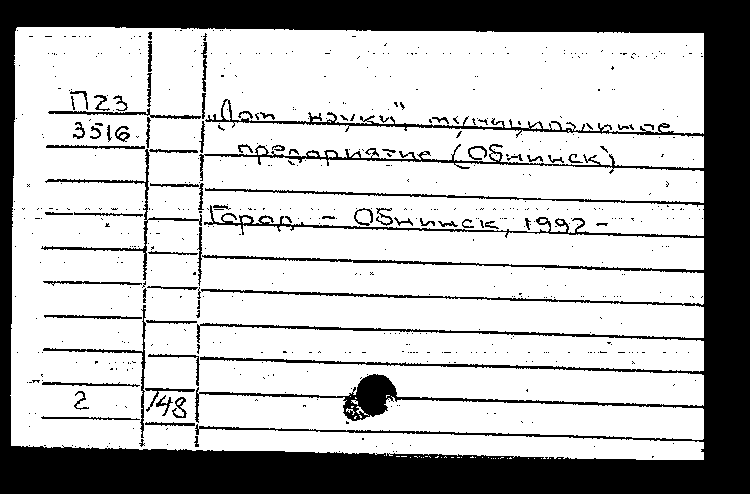 П23
3516
„Дом науки", муниципальное
предприятие (Обнинск)
Город. - Обнинск, 1992 -
2 148